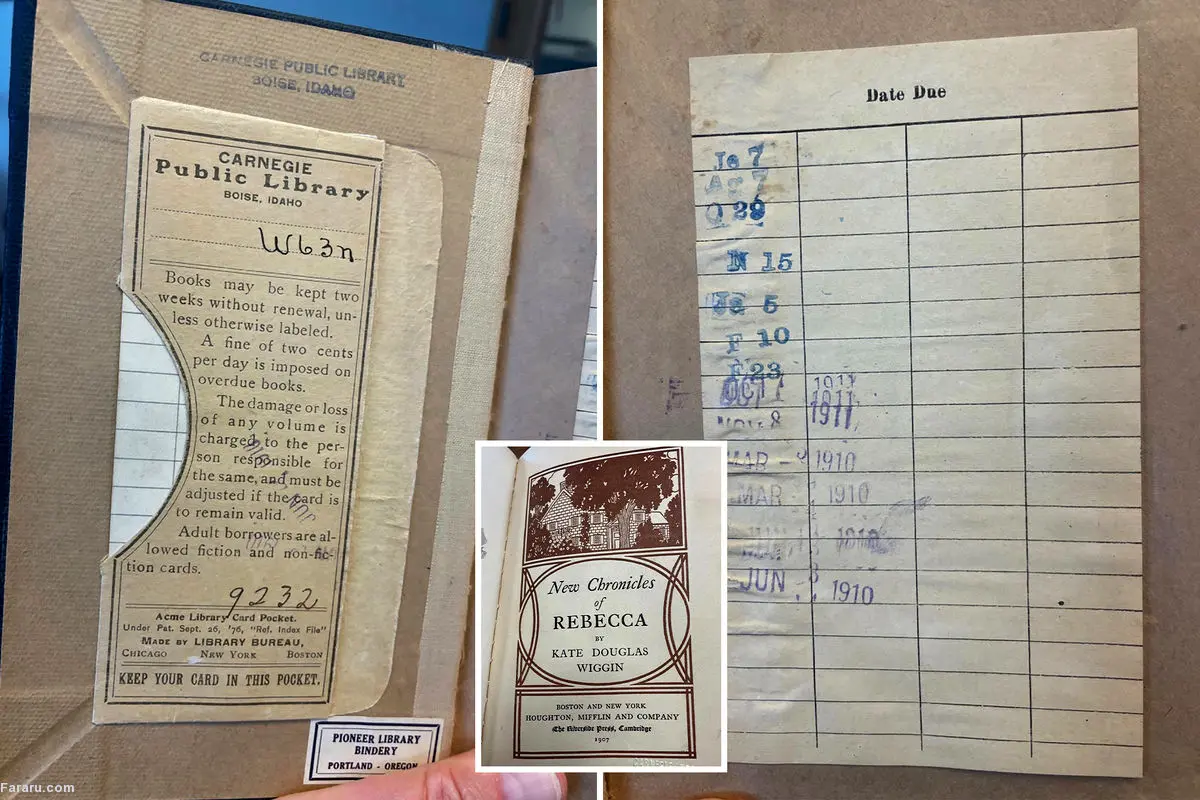 CARNEGIE PUBLIC LIBRARY
BOISE, IDAHO
CARNEGIE
Public Library
BOISE, IDAHO
W63n
Books may be kept two
weeks without renewal, un-
less otherwise labeled.
A fine of two cents
per day is imposed on
overdue books.
The damage or loss
of any volume is
charged to the per-
son responsible for
the same, and must be
adjusted if the card is
to remain valid.
Adult borrowers are al-
lowed fiction and non-fic-
tion cards.
9232
Acme Library Card Pocket.
Under Pat. Sept. 26, '76, "Ref. Index File"
MADE BY LIBRARY BUREAU,
CHICAGO NEW YORK BOSTON
KEEP YOUR CARD IN THIS POCKET.
PIONEER LIBRARY
BINDERY
PORTLAND - OREGON
New Chronicles
of
REBECCA
BY
KATE DOUGLAS
WIGGIN
BOSTON AND NEW YORK
HOUGHTON, MIFFLIN AND COMPANY
The Riverside Press, Cambridge
1907
Date Due
Ja 7
Ap 7
O 29
N 15
Ja 5
F 10
F 23
OCT 1911
1911
NOV 8 1911
MAR - 1910
MAR 1910
JUN 1910
JUN 1910
Fararu.com